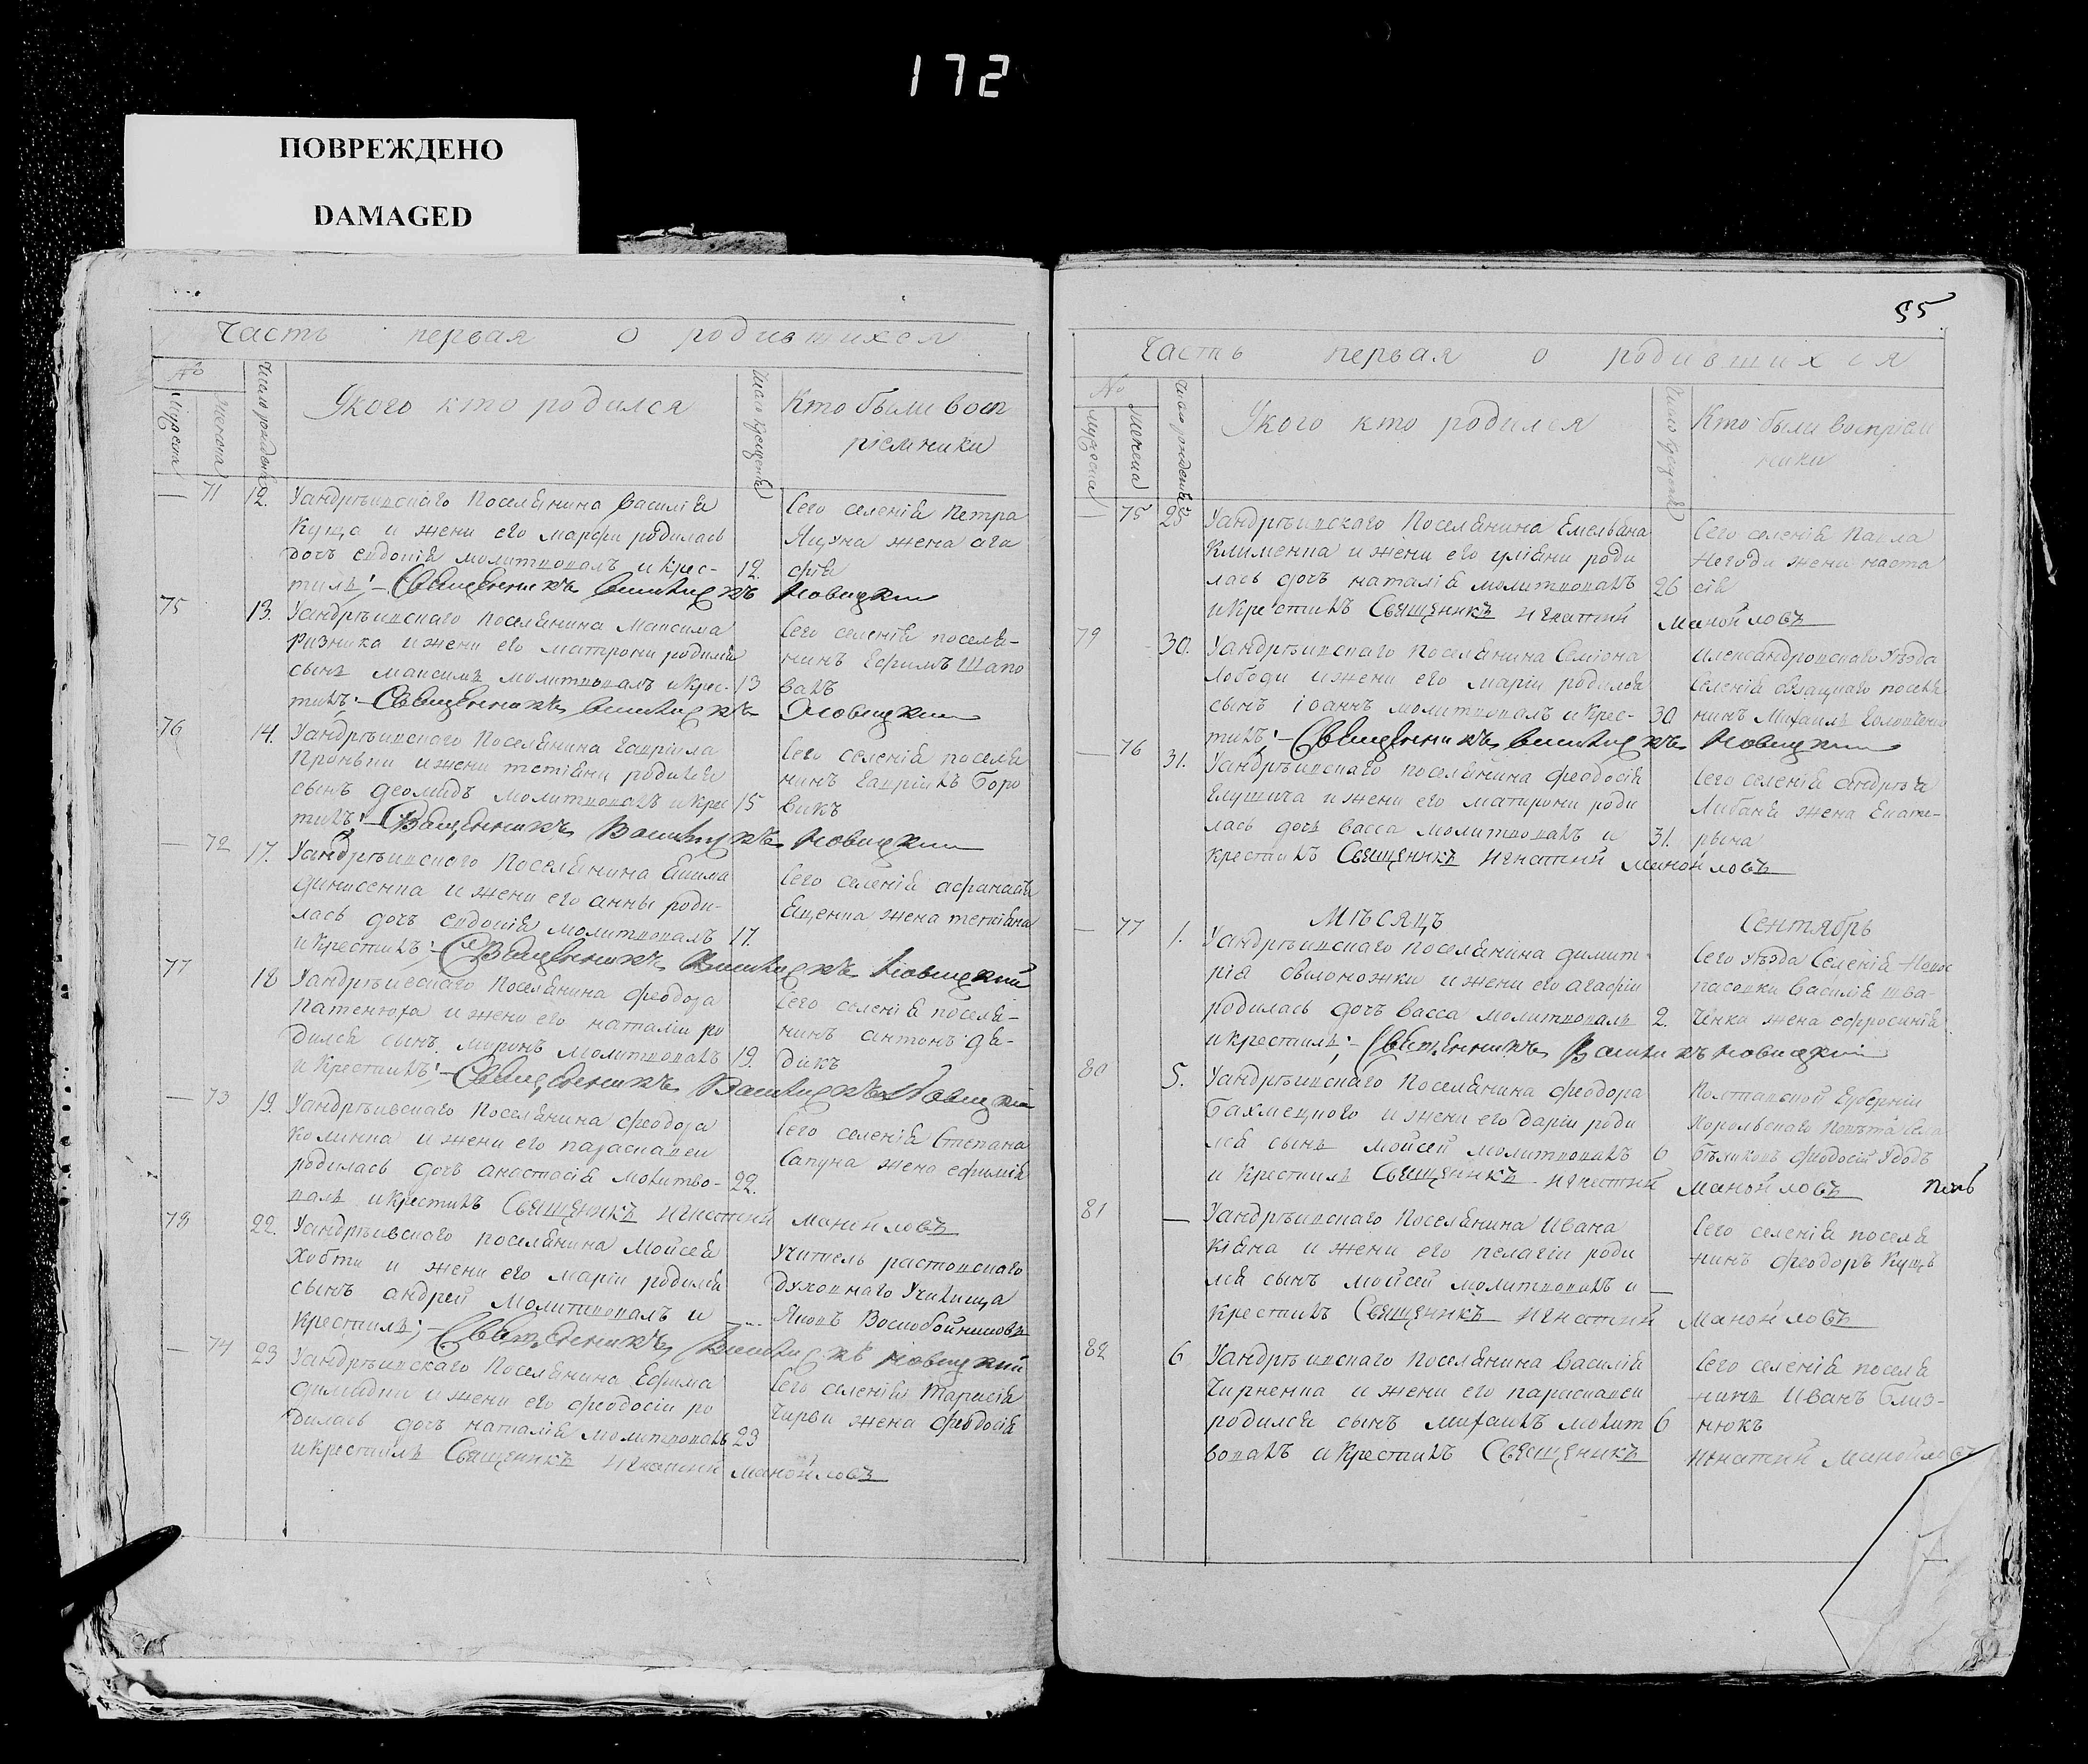 172
ПОВРЕЖДЕНО
DAMAGED
Часть первая о родившихся
№
Мужеска
Женска
Число рожденія
У кого кто родился
Число крещенія
Кто были восп
ріемники
— 71 12. У андрѣивскаго поселянина Василія
Куща и жени его марфи родилась
дочь евдокія молитвовалъ и крес- 12.
тилъ:— Священникъ Новицкий
Сего селенія Петра
Яцуна жена ага
фія
75 13. У андрѣивскаго поселянина Максима
Ризника и жени его матрони родился
сынъ максимъ молитвовалъ и крес- 13
тилъ:— Священникъ Новицкий
Сего селенія поселя-
нинъ Ефимъ Шапо
валъ
76 14. У андрѣивскаго Поселянина Гавріила
Проньки и жени тетіяни родился
сынъ деомидъ молитвовалъ и крес 15
тилъ:— Священникъ Новицкий
Сего селенія поселя
нинъ Гавріилъ Боро
викъ
— 72 17. У андрѣивскаго Поселянина
динисенка и жени его анны роди-
лась дочь евдокія молитвовалъ 17.
и крестилъ:— Священникъ Новицкий
Сего селенія афанасія
Яценка жена тетіяна
77 18 У андрѣевскаго Поселянина феодора
и жени его наталіи ро
дился сынъ миронъ молитвовалъ 19.
и крестилъ:— Священникъ Новицкий
Сего селенія поселя-
нинъ антонъ дя-
дикъ
— 73 19. У андрѣивскаго Поселянина феодора
и жени его параскавеи
родилась дочь анастасія молитво- 22.
валъ и крестилъ Священникъ Игнатий Манойловъ
Сего селенія Степана
Сапуна жена ефимія
78 22. У андрѣивскаго поселянина Моисея
Хобти и жени его маріи родился
сынъ андрей молитвовалъ и
крестилъ;— Священникъ Новицкий
Учитель
духовнаго Училища
Яковъ Воскобойниковъ
— 74 23 У андрѣивскаго Поселянина Ефима
и жени его феодосіи ро
дилась дочь наталія молитвовалъ 23
и крестилъ Священникъ Игнатий Манойловъ
Сего селенія
жена феодосія
85
Часть первая о родившихся
№
Мужеска
Женска
Число рожденія
У кого кто родился
Число крещенія
Кто были воспріем
ники
— 75 25 У андрѣивскаго Поселянина Емельяна
Клименка и жени его уліяни роди
лась дочь наталія молитвовалъ 26
и крестилъ Священникъ Игнатий Манойловъ
Сего селенія Павла
Негоди жена наста
сія
79 30. У андрѣивскаго поселянина Семіона
Лободи и жени его маріи родился
сынъ іоаннъ молитвовалъ и крес- 30
тилъ:— Священникъ Новицкий
Александровскаго Уѣзда
нинъ Михаилъ
— 76 31. У андрѣивскаго поселянина феодосія
и жени его матрони роди
лась дочь васса молитвовалъ и 31.
крестилъ Священникъ Игнатий Манойловъ
Сего селенія андрѣя
жена Екате-
рина
Мѣсяцъ Сентябрь
— 77 1. У андрѣивскаго поселянина димит
рія бѣлоножки и жени его агафіи
родилась дочь васса молитвовалъ 2.
и крестилъ;— Священникъ Новицкий
Сего уѣзда Селенія Ново
павловки Василія шва-
ченка жена ефросинія
80 5. У андрѣивскаго Поселянина феодора
Бахмецкого и жени его даріи роди
лся сынъ Моисей молитвовалъ 6
и крестилъ Священникъ Игнатий Манойловъ
Полтавской Губерніи
81 — У андрѣивскаго Поселянина Ивана
Кіяна и жени его пелагіи роди
лся сынъ моисей молитвовалъ и —
крестилъ Священникъ Игнатий Манойловъ
Сего селенія поселя
нинъ феодоръ Кущъ
82 6 У андрѣивскаго поселянина Василія
Чирненка и жени его параскавеи
родился сынъ михаилъ молит 6
вовалъ и крестилъ Священникъ
Сего селенія поселя
нинъ Иванъ близ-
нюкъ
Игнатий Манойловъ